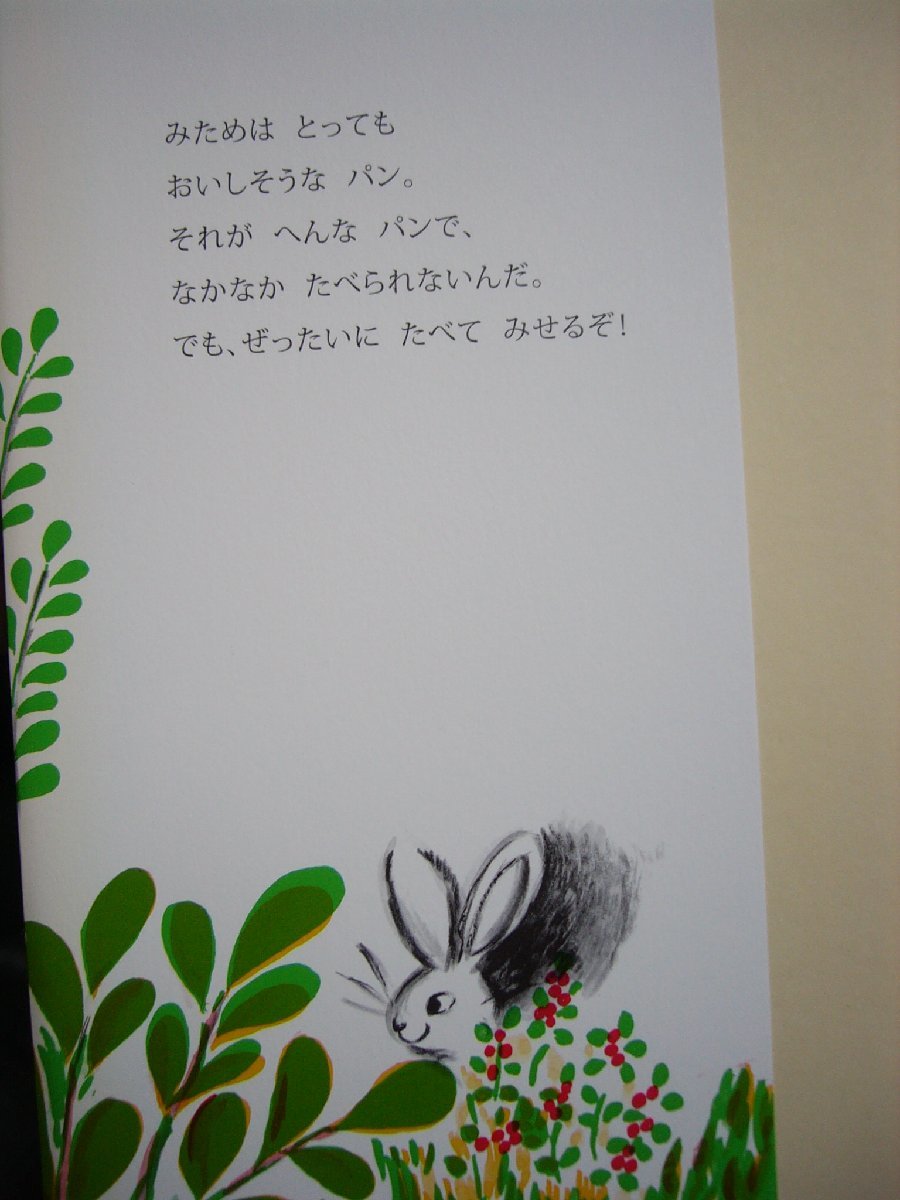 みためは とっても
おいしそうな パン。
それが へんな パンで、
なかなか たべられないんだ。
でも、ぜったいに たべて みせるぞ!